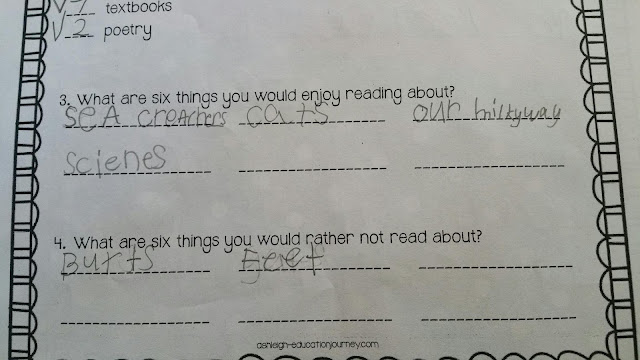 √ 1 textbooks
√ 2 poetry
3. What are six things you would enjoy reading about?
SeA creAchers cats our milkyway
scienes
4. What are six things you would rather not read about?
Burts
ashleigh-educationjourney.com